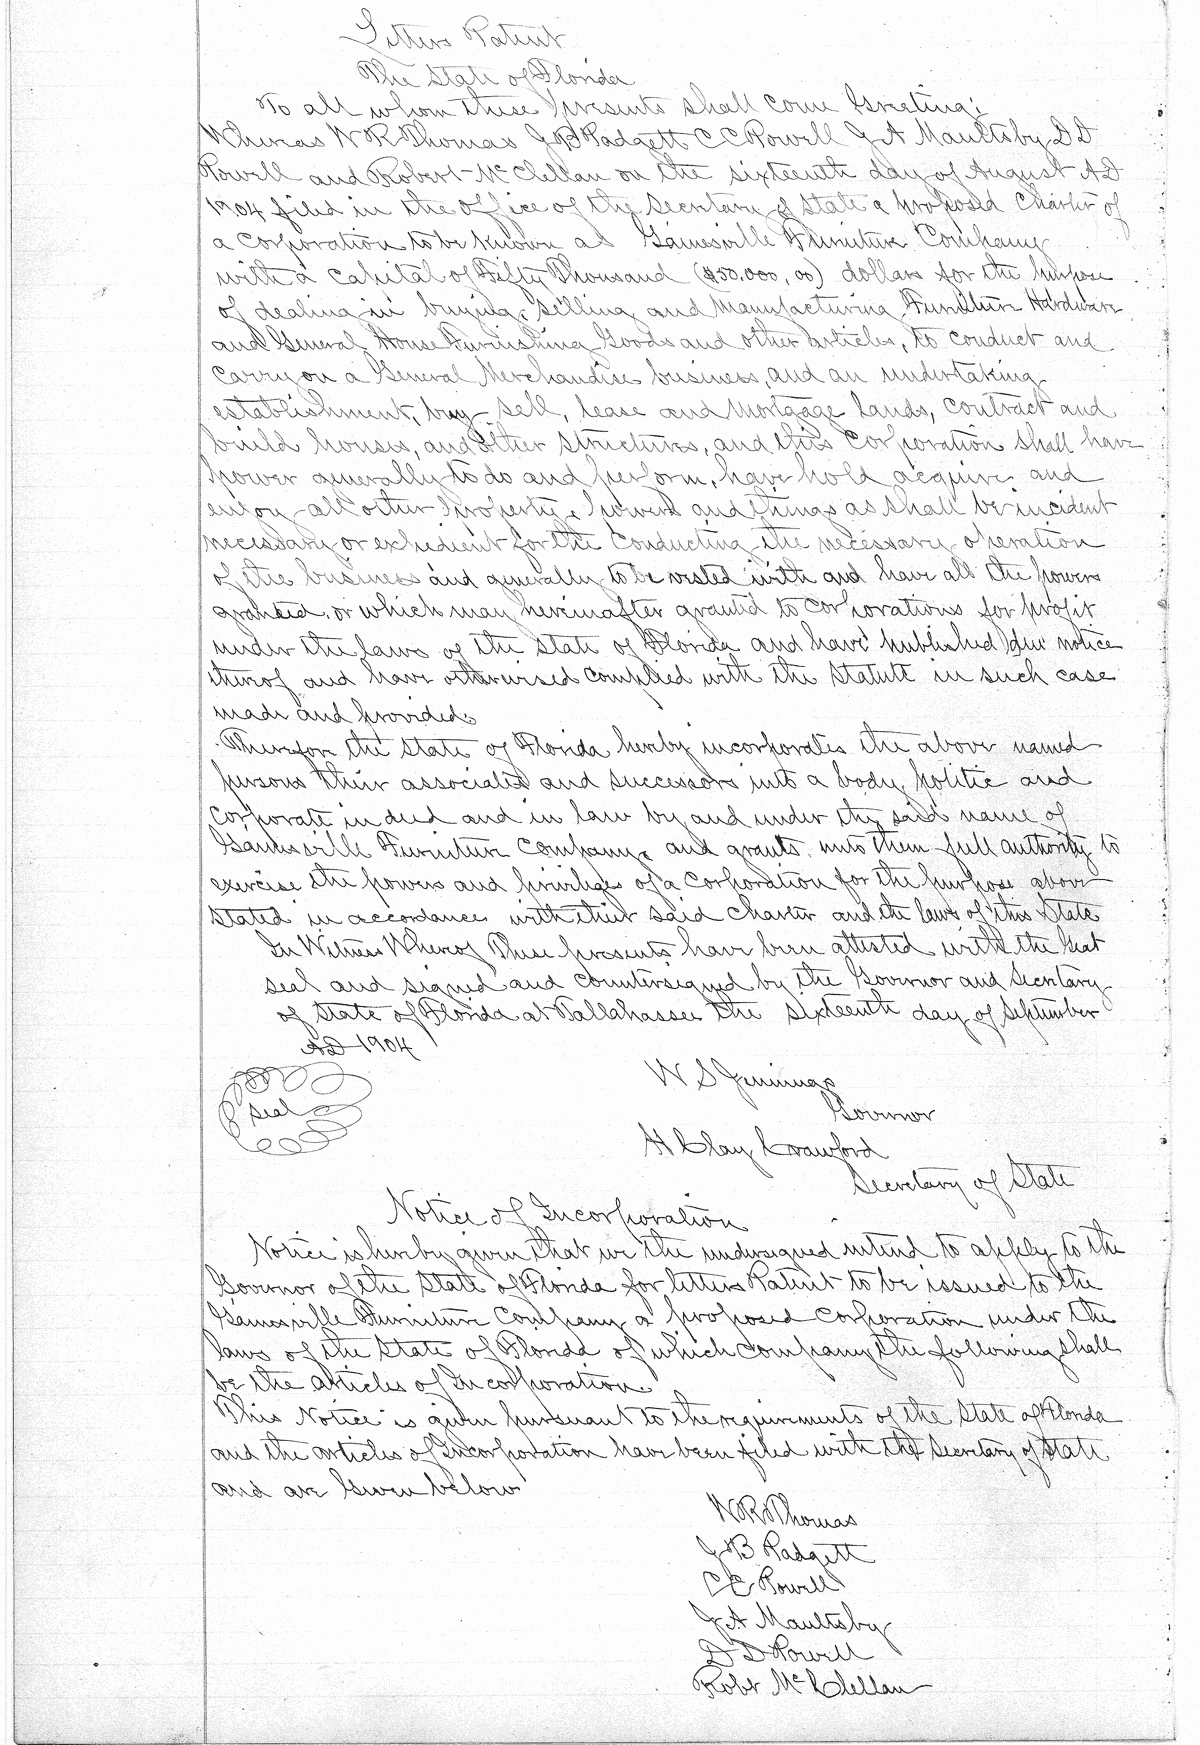 Letters Patent
The State of Florida
To all whom these presents shall come Greeting;
Whereas W R Thomas J B Padgett C C Powell J A Maultsby D D
Powell and Robert McClellan on the sixteenth day of August A D
1904 filed in the office of the Secretary of State a proposed Charter of
a corporation to be known as Gainesville Furniture Company
with a capital of Fifty Thousand ($50,000,00) dollars for the purpose
of dealing in buying, selling and manufacturing Furniture Hardware
and General House Furnishing Goods and other articles, to conduct and
carry on a General Merchandise business, and an undertaking
establishment, buy sell, lease and mortgage lands, contract and
build houses, and other structures, and this corporation shall have
power generally to do and perform, have hold acquire and
enjoy all other property, powers and things as shall be incident
necessary or expedient for the conducting the necessary operation
of the business and generally to be vested with and have all the powers
granted or which may hereinafter granted to corporations for profit
under the laws of the State of Florida and have published due notice
thereof and have otherwised complied with the Statute in such case
made and provided.
Therefore the State of Florida hereby incorporates the above named
persons their associates and successors into a body politic and
corporate in deed and in law by and under the said name of
Gainesville Furniture Company, and grants unto them full authority to
exercise the powers and privileges of a corporation for the purpose above
stated in accordance with their said charter and the laws of this State
In Witness Whereof These presents have been attested with the Great
seal and signed and countersigned by the Governor and Secretary
of State of Florida at Tallahassee the sixteenth day of September
AD 1904
W S Jennings
Seal
Governor
H Clay Crawford
Secretary of State
Notice of Incorporation
Notice is hereby given that we the undersigned intend to apply to the
Governor of the State of Florida for letters Patent to be issued to the
Gainesville Furniture Company a proposed corporation under the
laws of the State of Florida of which company the following shall
be the articles of Incorporation.
This Notice is given pursuant to the requirements of the State of Florida
and the articles of Incorporation have been filed with the Secretary of State
and are Given below
W R Thomas
J B Padgett
C C Powell
J A Maultsby
D D Powell
Robt McClellan